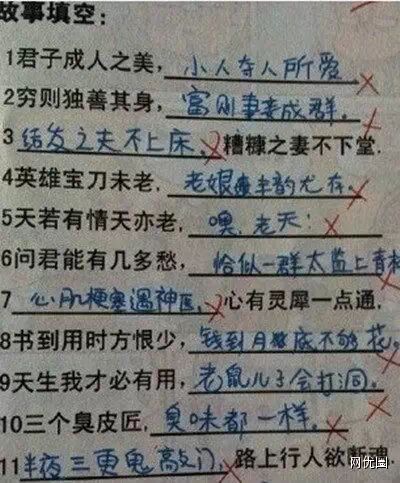 故事填空:
1君子成人之美, 小人夺人所爱
2穷则独善其身, 富则妻妾成群。
3 结发之夫不上床, 糟糠之妻不下堂.
4英雄宝刀未老, 老娘风韵尤存。
5天若有情天亦老, 噢,老天!
6问君能有几多愁, 恰似一群太监上青楼
7 心肌梗塞遇神医, 心有灵犀一点通,
8书到用时方恨少, 钱到月底不够花。
9天生我才必有用, 老鼠儿子会打洞。
10三个臭皮匠, 臭味都一样。
11半夜三更鬼敲门, 路上行人欲断魂
网优圈